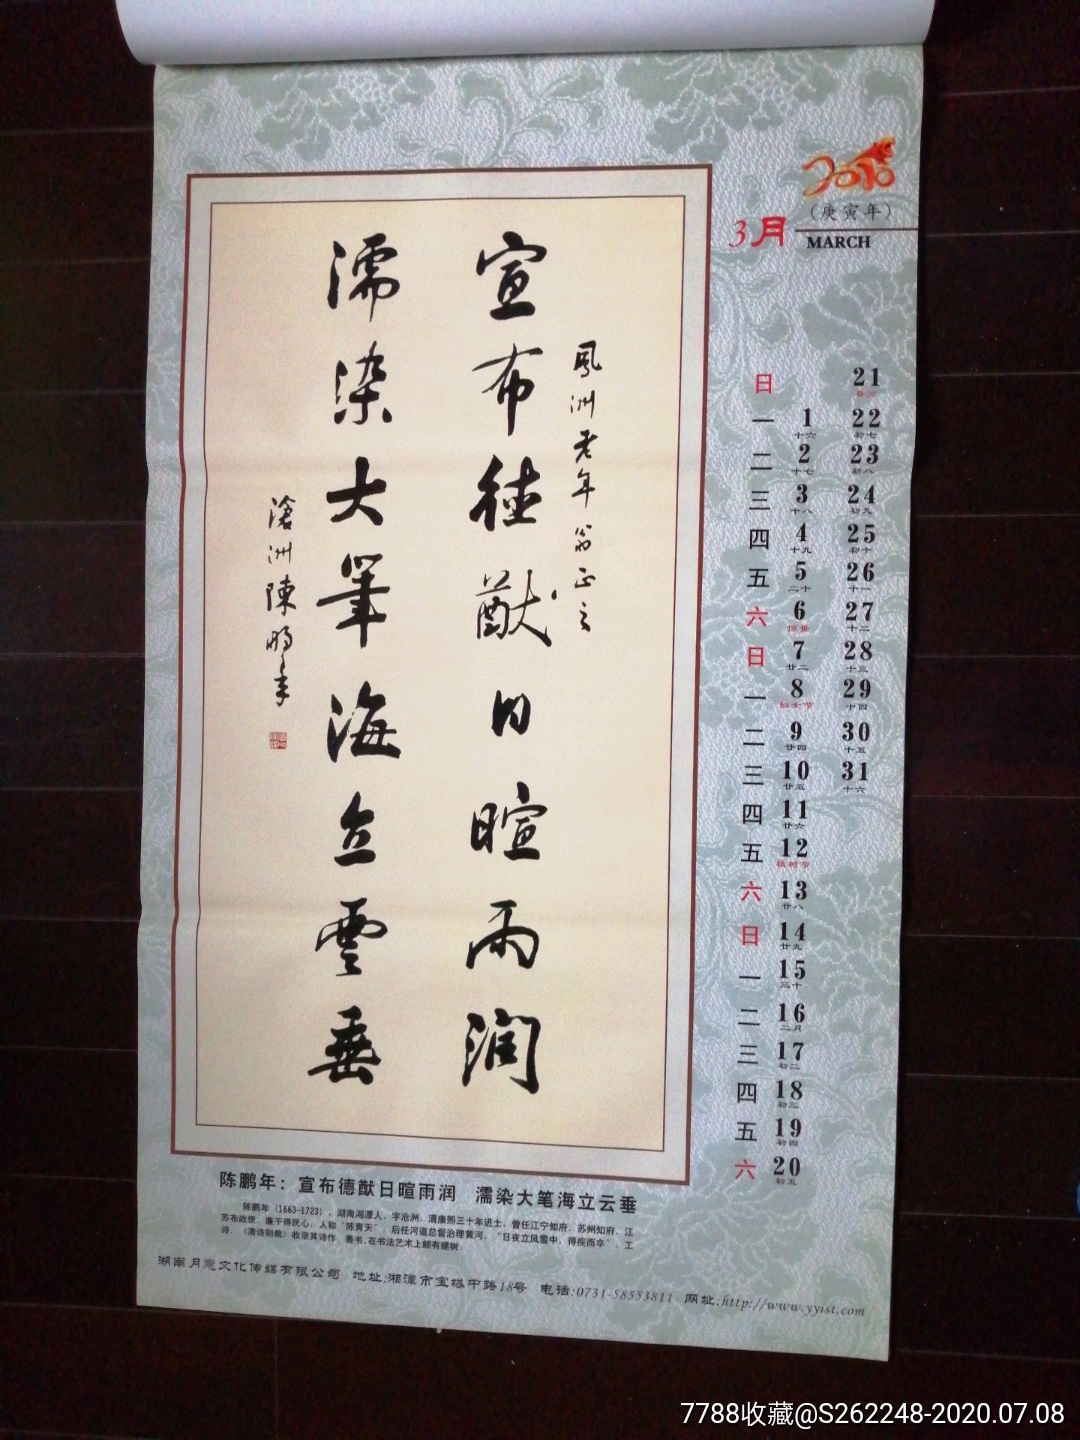 2010
（庚寅年）
3月 MARCH
鳳洲老年翁正之
宣布德猷日暄雨润
濡染大筆海立雲垂
滄洲陳鵬年
日
一 1 十六
二 2 十七
三 3 十八
四 4 十九
五 5 二十
六 6 惊蛰
日 7 廿二
一 8 妇女节
二 9 廿四
三 10 廿五
四 11 廿六
五 12 植树节
六 13 廿八
日 14 廿九
一 15 三十
二 16 二月
三 17 初二
四 18 初三
五 19 初四
六 20 初五
21 春分
22 初七
23 初八
24 初九
25 初十
26 十一
27 十二
28 十三
29 十四
30 十五
31 十六
陈鹏年：宣布德猷日暄雨润 濡染大笔海立云垂
陈鹏年（1663-1723），湖南湘潭人，字沧洲，清康熙三十年进士，曾任江宁知府，苏州知府，江
苏布政使，廉干得民心，人称“陈青天”，后任河道总督治理黄河，“日夜立风雪中，得疾而卒”，工
诗，《清诗别裁》收录其诗作，善书，在书法艺术上颇有建树。
湖南月意文化传媒有限公司 地址:湘潭市宝塔中路18号 电话:0731-58553811 网址:http://www.yyist.com
7788收藏@S262248-2020.07.08